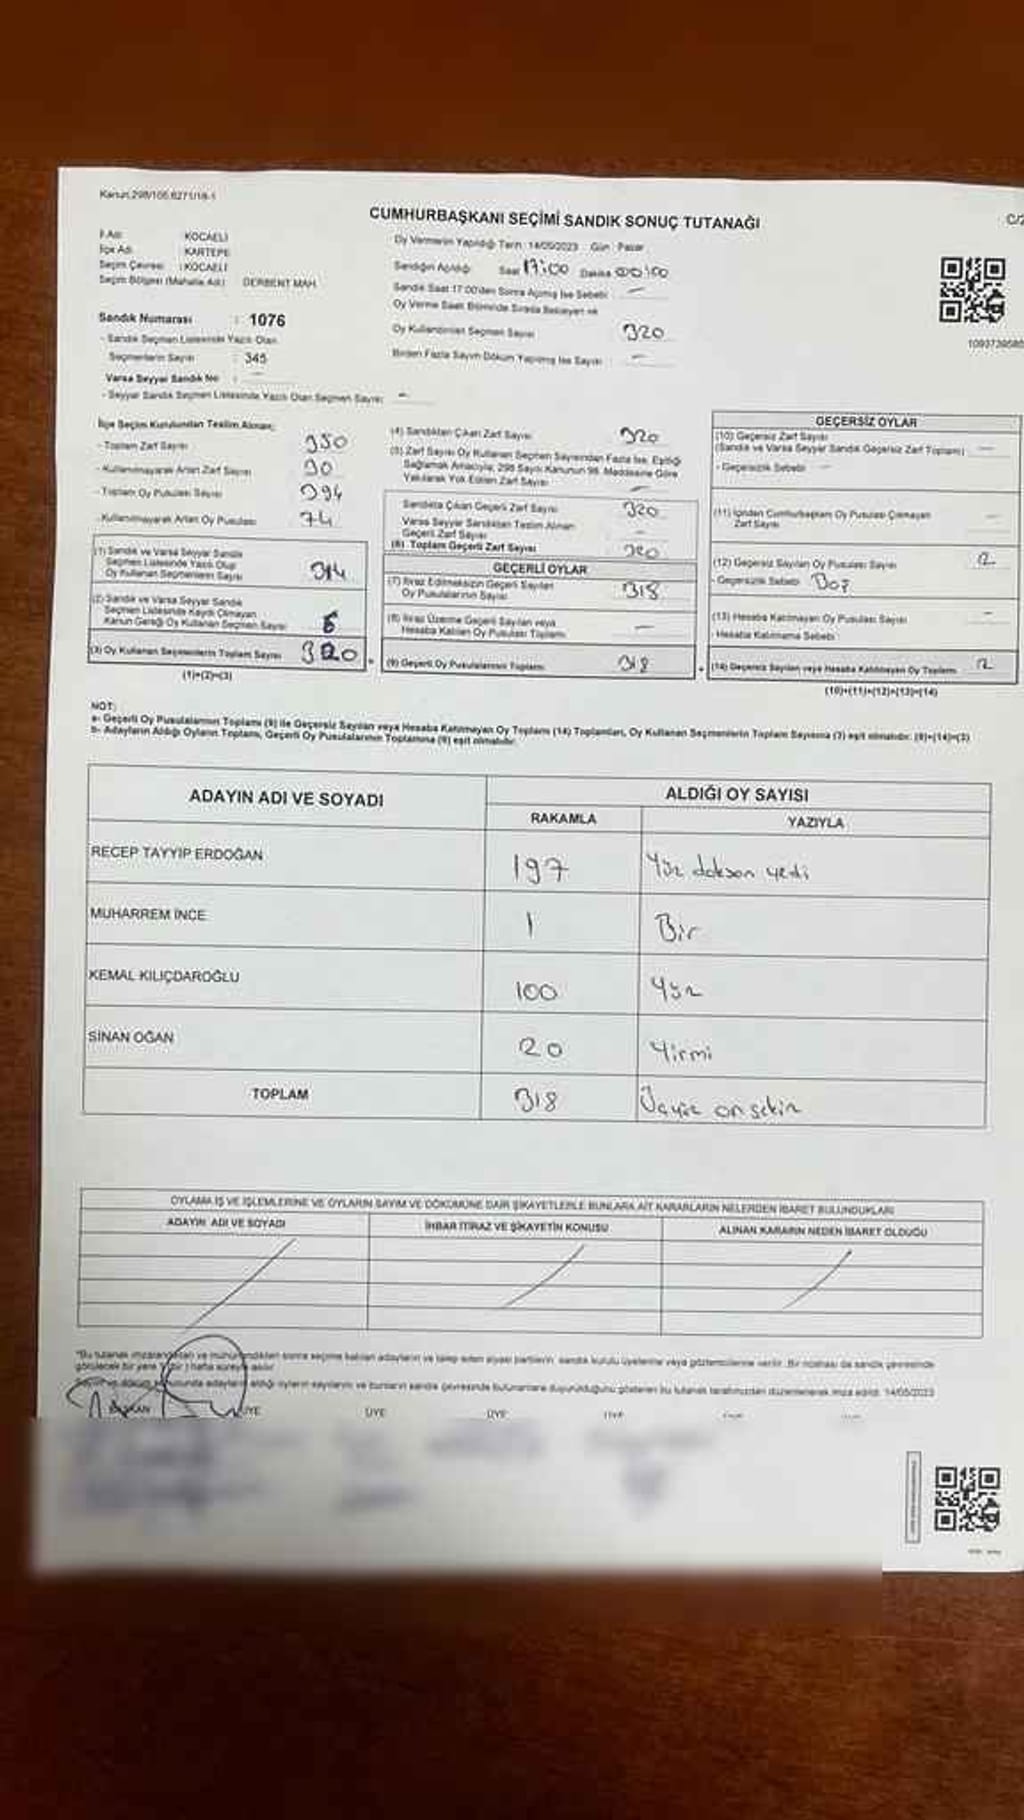 Kanun:298/105,6271/18-1
CUMHURBAŞKANI SEÇİMİ SANDIK SONUÇ TUTANAĞI
C/2
İl Adı :KOCAELİ
İlçe Adı :KARTEPE
Seçim Çevresi :KOCAELİ
Seçim Bölgesi (Mahalle Adı) DERBENT MAH.
Oy Vermenin Yapıldığı Tarih :14/05/2023 Gün : Pazar
Sandığın Açıldığı Saat 17:00 Dakika
Sandık Saat 17.00'den Sonra Açılmış İse Sebebi : —
Oy Verme Saati Bitiminde Sırada Bekleyen ve
Oy Kullandırılan Seçmen Sayısı 320
Birden Fazla Sayım Döküm Yapılmış İse Sayısı : —
Sandık Numarası : 1076
- Sandık Seçmen Listesinde Yazılı Olan
Seçmenlerin Sayısı : 345
Varsa Seyyar Sandık No : —
- Seyyar Sandık Seçmen Listesinde Yazılı Olan Seçmen Sayısı: —
İlçe Seçim Kurulundan Teslim Alınan;
- Toplam Zarf Sayısı 350
- Kullanılmayarak Artan Zarf Sayısı 30
- Toplam Oy Pusulası Sayısı 394
- Kullanılmayarak Artan Oy Pusulası 74
(1) Sandık ve Varsa Seyyar Sandık
Seçmen Listesinde Yazılı Olup
Oy Kullanan Seçmenlerin Sayısı 314
(2) Sandık ve Varsa Seyyar Sandık
Seçmen Listesinde Kaydı Olmayan
Kanun Gereği Oy Kullanan Seçmen Sayısı 6
(3) Oy Kullanan Seçmenlerin Toplam Sayısı 320
(1)+(2)=(3)
(4) Sandıktan Çıkan Zarf Sayısı 320
(5) Zarf Sayısı Oy Kullanan Seçmen Sayısından Fazla İse, Eşitliği
Sağlamak Amacıyla, 298 Sayılı Kanunun 98. Maddesine Göre
Yakılarak Yok Edilen Zarf Sayısı —
Sandıkta Çıkan Geçerli Zarf Sayısı 320
Varsa Seyyar Sandıktan Teslim Alınan
Geçerli Zarf Sayısı —
(6) Toplam Geçerli Zarf Sayısı 320
GEÇERLİ OYLAR
(7) İtiraz Edilmeksizin Geçerli Sayılan
Oy Pusulalarının Sayısı 318
(8) İtiraz Üzerine Geçerli Sayılan veya
Hesaba Katılan Oy Pusulası Toplamı —
(9) Geçerli Oy Pusulalarının Toplamı 318
GEÇERSİZ OYLAR
(10) Geçersiz Zarf Sayısı
(Sandık ve Varsa Seyyar Sandık Geçersiz Zarf Toplamı) —
- Geçersizlik Sebebi —
(11) İçinden Cumhurbaşkanı Oy Pusulası Çıkmayan
Zarf Sayısı —
(12) Geçersiz Sayılan Oy Pusulası Sayısı 2
- Geçersizlik Sebebi
(13) Hesaba Katılmayan Oy Pusulası Sayısı —
- Hesaba Katılmama Sebebi
(14) Geçersiz Sayılan veya Hesaba Katılmayan Oy Toplamı 2
(10)+(11)+(12)+(13)=(14)
NOT:
a- Geçerli Oy Pusulalarının Toplamı (9) ile Geçersiz Sayılan veya Hesaba Katılmayan Oy Toplamı (14) Toplamları, Oy Kullanan Seçmenlerin Toplam Sayısına (3) eşit olmalıdır. (9)+(14)=(3)
b- Adayların Aldığı Oyların Toplamı, Geçerli Oy Pusulalarının Toplamına (9) eşit olmalıdır.
ADAYIN ADI VE SOYADI
ALDIĞI OY SAYISI
RAKAMLA YAZIYLA
RECEP TAYYİP ERDOĞAN 197 Yüz doksan yedi
MUHARREM İNCE 1 Bir
KEMAL KILIÇDAROĞLU 100 Yüz
SİNAN OĞAN 20 Yirmi
TOPLAM 318 Üçyüz onsekiz
OYLAMA İŞ VE İŞLEMLERİNE VE OYLARIN SAYIM VE DÖKÜMÜNE DAİR ŞİKAYETLERLE BUNLARA AİT KARARLARIN NELERDEN İBARET BULUNDUKLARI
ADAYIN ADI VE SOYADI İHBAR İTİRAZ VE ŞİKAYETİN KONUSU ALINAN KARARIN NEDEN İBARET OLDUĞU
*Bu tutanak imzalandıktan ve mühürlendikten sonra seçime katılan adayların ve talep eden siyasi partilerin sandık kurulu üyelerine veya gözlemcilerine verilir. Bir nüshası da sandık çevresinde
görülecek bir yere 1 (bir) hafta süreyle asılır.
Sayım ve döküm sonunda adayların aldığı oyların sayılarını ve bunların sandık çevresinde bulunanlara duyurulduğunu gösteren bu tutanak tarafımızdan düzenlenerek imza edildi. 14/05/2023
BAŞKAN ÜYE ÜYE ÜYE